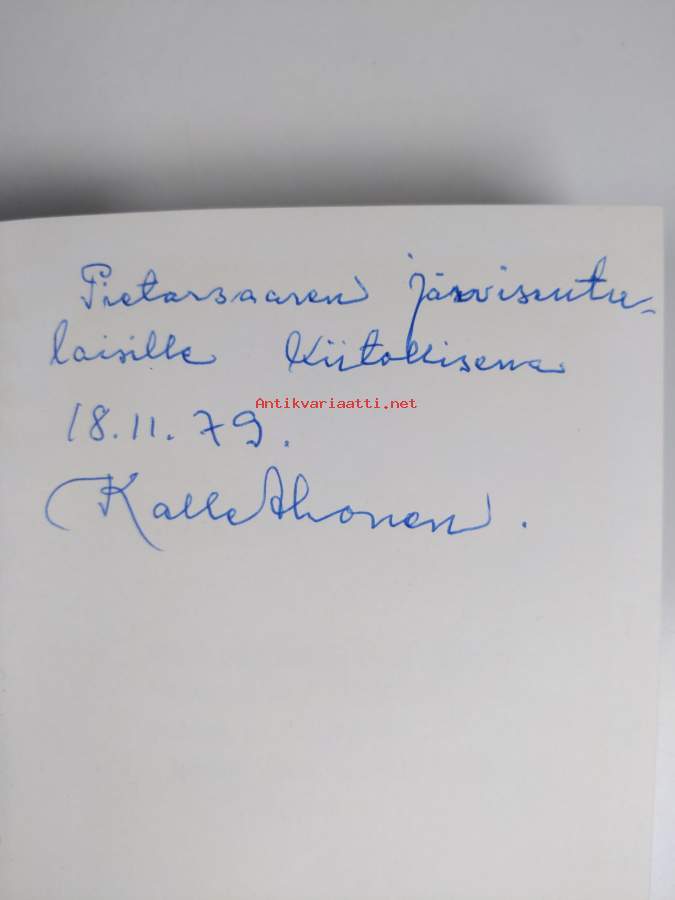 Pietarsaaren järviseutu-
laisille Kiitollisena
Antikvariaatti.net
18.11.79.
Kalle Ahonen.